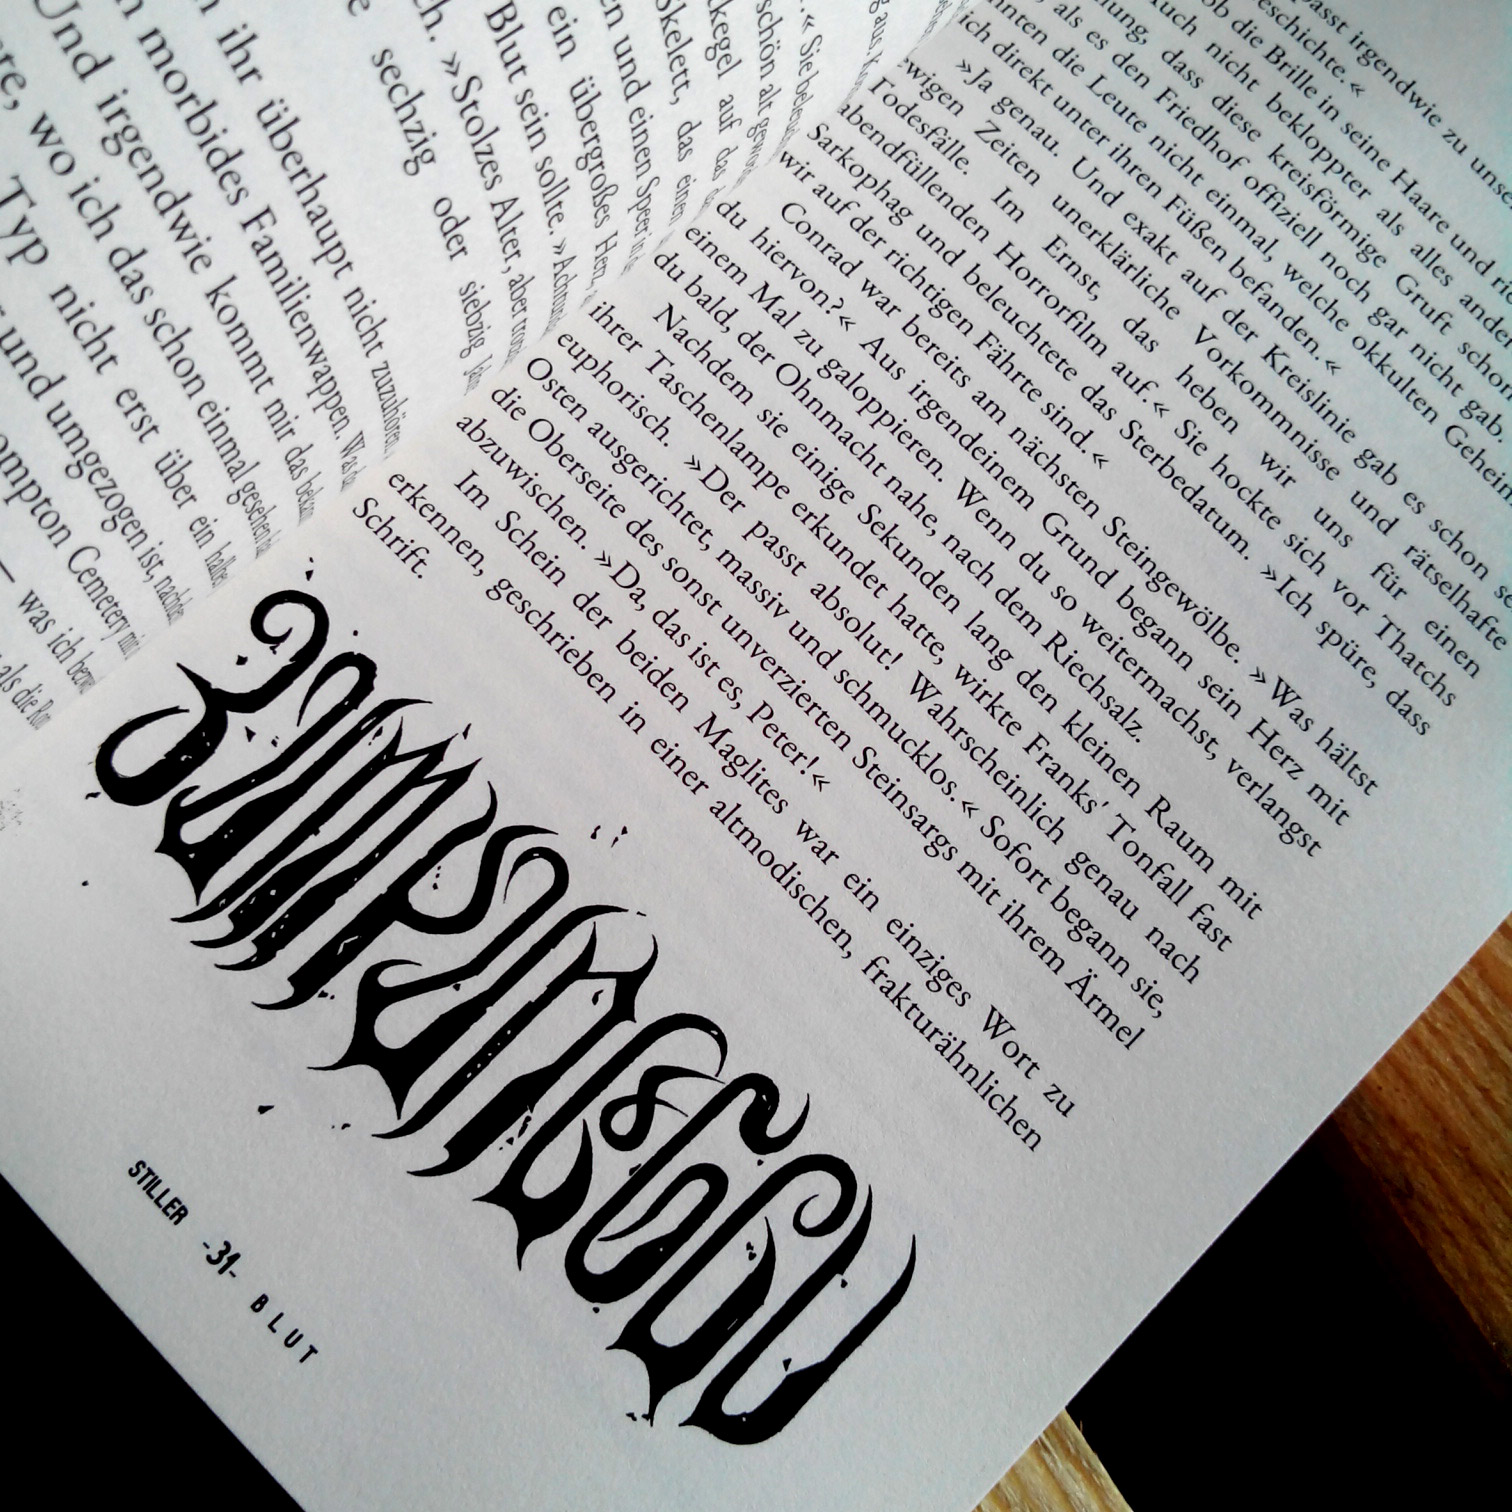 Sie
schön alt
auf das
Skelett, das einen
und einen Speer
ein übergroßes Herz,
Blut sein sollte.
»Stolzes Alter, aber
sechzig oder siebzig
ihr überhaupt nicht zuzuhören.
morbides Familienwappen. Was
Und irgendwie kommt mir das
wo ich das schon einmal gesehen
Typ nicht erst über ein
und umgezogen ist, nachdem
Cemetery
— was ich
als die
passt irgendwie zu
die Brille in seine Haare und
Auch nicht bekloppter als alles
dass diese kreisförmige Gruft schon
als es den Friedhof offiziell noch gar nicht gab,
die Leute nicht einmal, welche okkulten
ich direkt unter ihren Füßen befanden.«
»Ja genau. Und exakt auf der Kreislinie gab es schon
ewigen Zeiten unerklärliche Vorkommnisse und rätselhafte
Todesfälle. Im Ernst, das heben wir uns für einen
abendfüllenden Horrorfilm auf.« Sie hockte sich vor Thatchs
Sarkophag und beleuchtete das Sterbedatum. »Ich spüre, dass
wir auf der richtigen Fährte sind.«
Conrad war bereits am nächsten Steingewölbe. »Was hältst
du hiervon?« Aus irgendeinem Grund begann sein Herz mit
einem Mal zu galoppieren. Wenn du so weitermachst, verlangst
du bald, der Ohnmacht nahe, nach dem Riechsalz.
Nachdem sie einige Sekunden lang den kleinen Raum mit
ihrer Taschenlampe erkundet hatte, wirkte Franks' Tonfall fast
euphorisch. »Der passt absolut! Wahrscheinlich genau nach
Osten ausgerichtet, massiv und schmucklos.« Sofort begann sie,
die Oberseite des sonst unverzierten Steinsargs mit ihrem Ärmel
abzuwischen. »Da, das ist es, Peter!«
Im Schein der beiden Maglites war ein einziges Wort zu
erkennen, geschrieben in einer altmodischen, frakturähnlichen
Schrift.
STILLER -31- BLUT